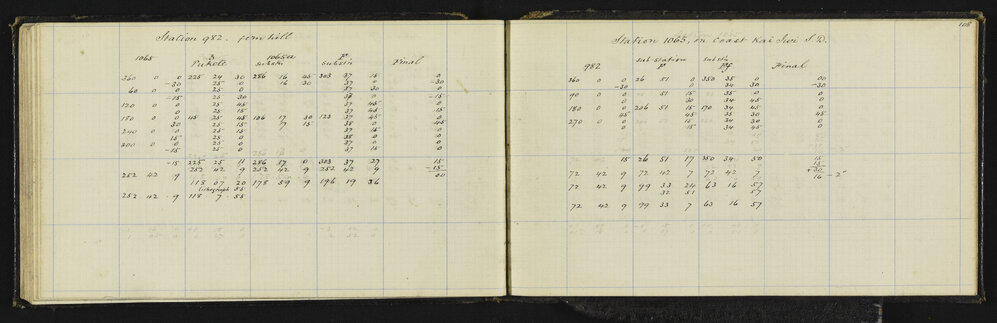 Station 982. fernhill
1065 B Pukete 1065a Substn P Substn Final
360 0 0 225 24 30 286 16 45 303 37 15 0
-30 25 0 16 30 37 0 -30
60 0 0 25 0 37 30 0
-15 25 30 37 0 -15
120 0 0 25 45 37 45 0
0 25 15 37 45 -15
180 0 0 45 25 45 106 17 30 123 37 45 0
30 25 15 17 15 38 0 45
240 0 0 25 15 37 15 0
15 25 0 38 0 0
300 0 0 25 0 37 0 0
-15 25 0 37 15 0
-15 225 25 11 286 17 0 303 37 27 15
252 42 9 252 42 9 252 42 9 -15
252 42 9 00
118 07 20 178 59 9 196 19 36
Lithograph 55
252 42 9 118 7 55
108
Station 1065, on Coast Kai Iwi S.D.
982 Sub-Station P Substn Final
360 0 0 26 51 0 350 35 0 00
-30 0 34 30 -30
90 0 0 51 15 35 0 0
0 30 34 45 0
180 0 0 206 51 15 170 34 45 0
45 45 35 30 45
270 0 0 15 34 30 0
0 15 34 45 0
15 26 51 17 350 34 50 15
72 42 9 72 42 7 72 42 7 +30
16 - 2"
72 42 9 99 33 24 63 16 57
32 51 57
72 42 9 99 33 7 63 16 57